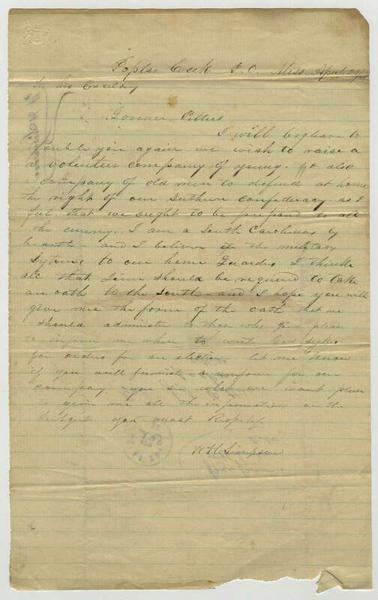 Poplar Creek P.O. Miss April
To his Excelency
Governor Pettus
I will beg leave to
trouble you again we wish to raise a
a volunteer company of young. & also
a company of old men to defend at home
the right of our Southern Confederacy as I
feel that we ought to be prepared to
the enemy. I am a South Carolinian by
and I believe in the military
System, to our home Guards, I think
all that Join should be required to take
an oath to the South and I hope you will
give me the form of the oath that we
should administer to those who Join please
to inform me where to write
for orders for an election. let me know
if you will furnish a uniform for our
company you see what we want please
to give me all the information on the
Subject you most Respt
W H Simpson